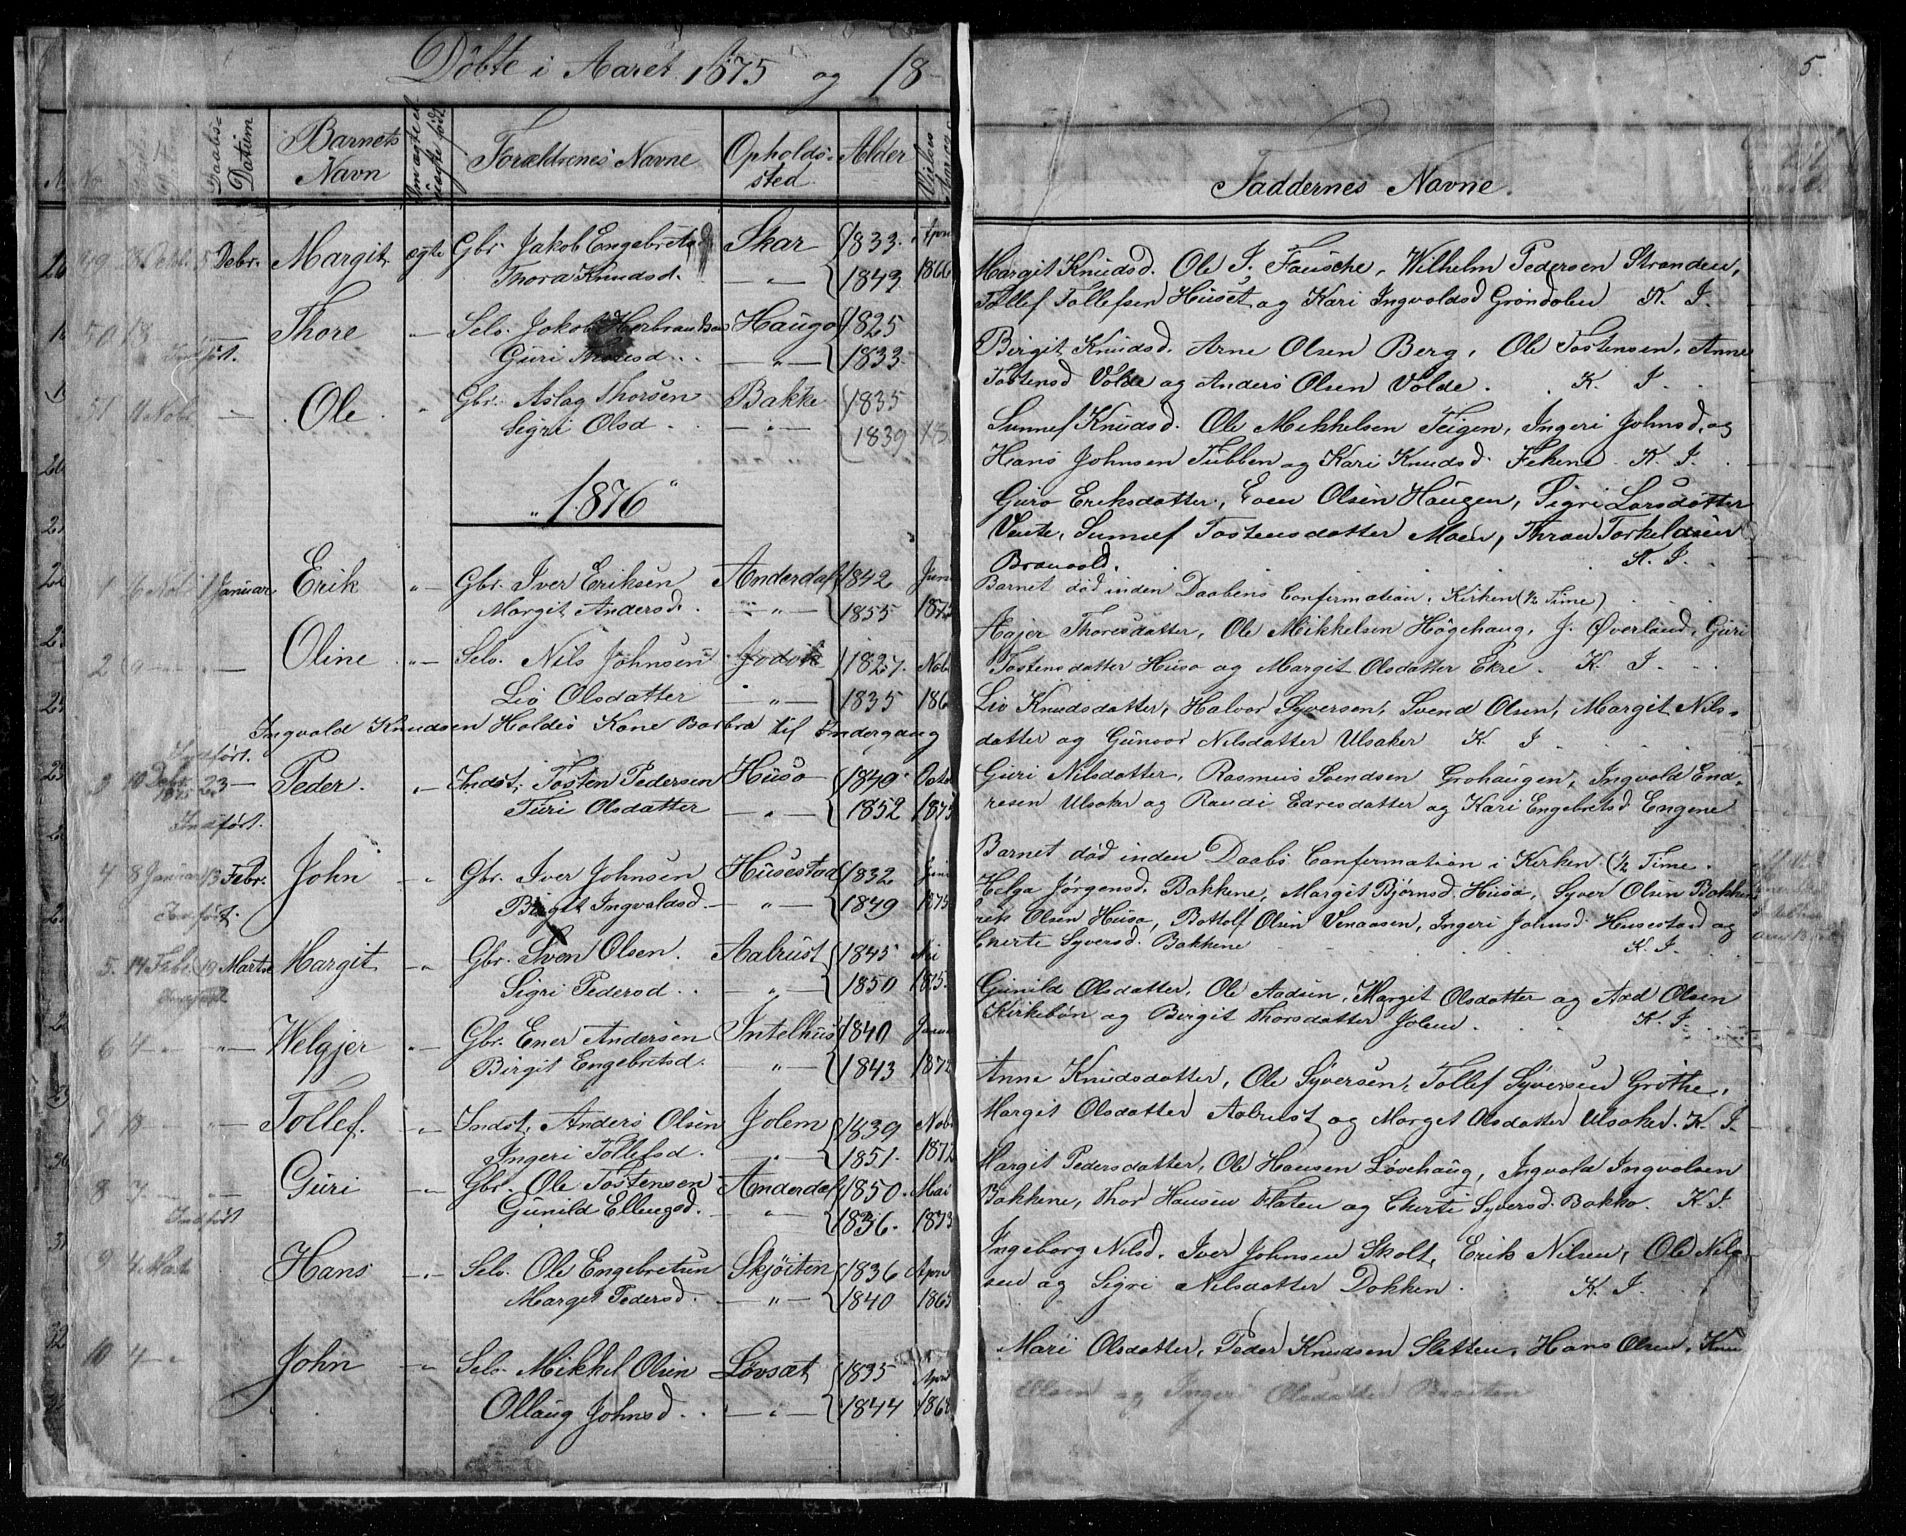 Döbte i Aaret 1875 og 18
5.
Daabs-Datum
Barnets Navn
Forældrenes Navne
Opholds-sted
Alder
Faddernes Navne.
Debr. Margit ægte Gbr. Jakob Engebretsd Skar 1833. Apr
Thora Knudsd. — " — 1843 1866
50 13 Thore — Selv. Jakob Herbrandsen Haugo 1825
Indført. Guri Thoresd. — " — 1833.
51 11 Nobr — Ole " Gbr. Aslag Thorsen Bakke 1835
Sigri Olsd — " — 1839
" 1876 "
1 Nobr 1 Januar Erik " Gbr. Iver Eriksen Anderdal 1842 Juni
Margit Andersd. " 1855 187
2 Oline " Selv. Nils Johnsen 1827. Nobr
Liv Olsdatter " 1835 186
Ingvald Knudsen Holdes Kone Barbra til Indergang
Indført.
3 10 Debr 1875 23 — Peder. " Indst. Tosten Pedersen Huso 1849 Octo
Indført. Turi Olsdatter — " — 1852 1875
4 8 Januar 13 Febr. John " Gbr. Iver Johnsen Husestad 1832 Juni
Indført. Birgit Ingvaldsd. — " — 1849 1875
5. 14 Febr 19 Marts Margit " Gbr. Sven Olsen Aalrust 1845 Mai
Sigri Pedersd. " 1850 1875.
6 4 — " — Welgjer " Gbr. Ener Andersen Intelhus 1840 Janu
Birgit Engebretsd. " 1843 187
Tollef. " Indst. Anders Olsen Jolem 1839 Nobr
Ingeri Tollefsd. " 1851. 187
8 Guri " Gbr. Ole Tostensen Anderdal 1850. Mai
Indført Gunild Ellingsd. — " — 1836. 1873
9 4 Hans " Selv. Ole Engebretsen Skjöiten 1836 April
Marget Pedersd. — " — 1840 1865
10 4 — John " Selv. Mikkel Olsen Lövsæt 1835 April
Ollaug Johnsd. — " — 1844 1868
Margit Knudsd. Ole J. Fausche, Wilhelm Pedersen Stranden,
Tollef Tollefsen Huset og Kari Ingvoldsd Gröndolen K. I.
Birgit Knudsd. Arne Olsen Berg, Ole Tostensen, Anne
Tostensd Volde og Anders Olsen Volde. K. I.
Sunnef Knudsd. Ole Mikkelsen Teigen, Ingeri Johnsd, og
Hans Johnsen Tubben og Kari Knudsd. Fekene. K. I.
Guro Eriksdatter, Even Olsen Haugen, Sigri Larsdatter
Veute, Sunnef Tostensdatter Moen, Thron Torkeldsen
Branvold. K. I.
Barnet död inden Daabens Confirmation i Kirken (½ Time)
Hajer Thoresdatter, Ole Mikkelsen Högehaug, J. Överland, Guri
Tostensdatter Huso og Margit Olsdatter Ekre. K. I.
Liv Knudsdatter, Halvor Syversen, Svend Olsen, Margit Nils-
datter og Gunvor Nilsdatter Ulsaker K. I
Guri Nilsdatter, Rasmus Svendsen Grohaugen, Ingvold End-
resen Ulsaker og Randi Edresdatter og Kari Engebretsd Engene
Barnet död inden Daabs Confirmation i Kirken (½ Time.
Helga Jörgensd. Bakkene, Margit Bjørnsd. Huso, Syver Olsen Bakken
Erik Olsen Huso, Bottolf Olsen Venaasen, Ingeri Johnsd. Husestad og
Cherte Syversd. Bakkene K. I.
Gunild Olsdatter, Ole Aadsen, Margit Olsdatter og Aad Olsen
Kirkebön og Birgit Thorsdatter Jolem. K. I
Anne Knudsdatter, Ole Syversen, Tollef Syversen Gröthe,
Margit Olsdatter Aalrust og Marget Olsdatter Ulsaker. K. I
Margit Pedersdatter, Ole Hansen Lövehaug, Ingvold Ingvolsen
Bakkene, Thor Hansen Flaten og Cherti Syversd. Bakko. K. I
Ingeborg Nilsd. Iver Johnsen Skolt, Erik Nilsen, Ole Nils-
sen og Sigri Nilsdatter Dokken. K. I.
Mari Olsdatter, Peder Knudsen Sletten, Hans Olsen, Knu
Olsen og Ingeri Olsdatter